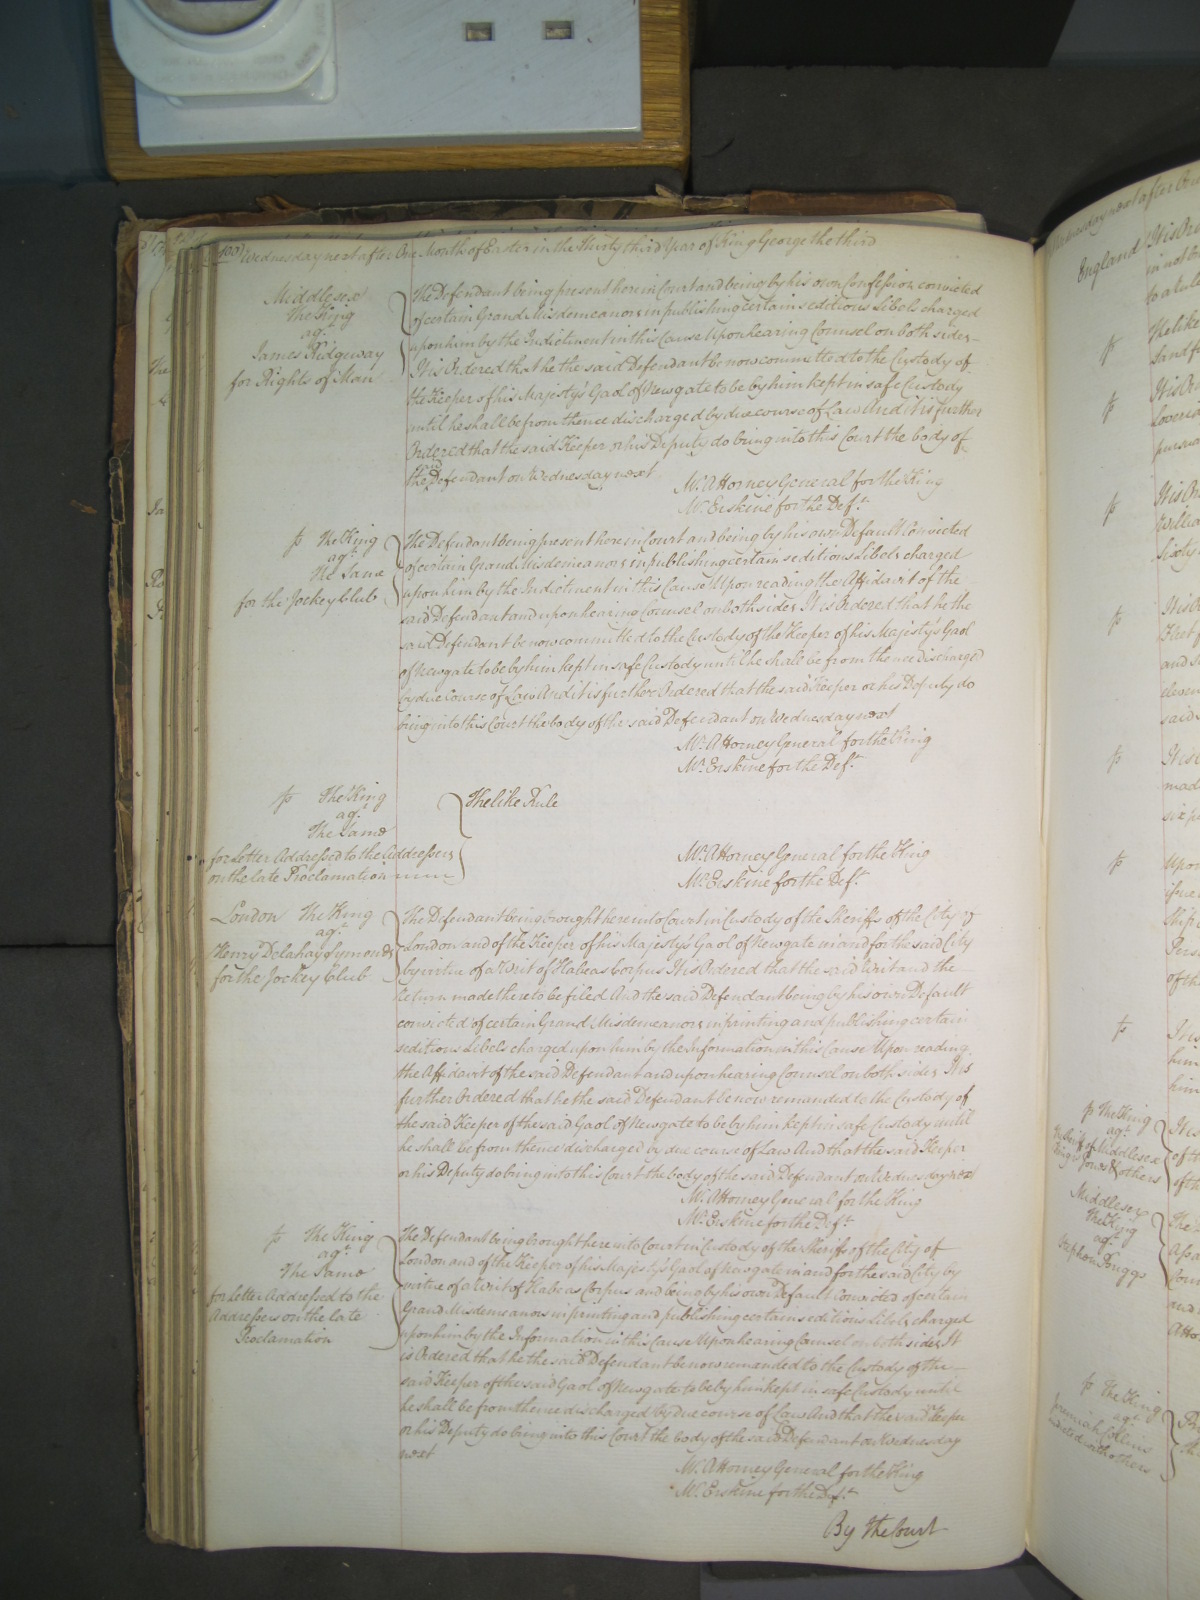 Wednesday next after One Month of Easter in the Thirty third Year of King George the third
Middlesex
The King
agt
James Ridgeway
for Rights of Man
The Defendant being present here in Court and being by his own Confession convicted
of certain Grand Misdemeanors in publishing certain seditious Libels charged
upon him by the Indictment in this Cause Upon hearing Counsel on both sides
It is Ordered that he the said Defendant be now committed to the Custody of
the Keeper of his Majesty's Gaol of Newgate to be by him kept in safe Custody
until he shall be from thence discharged by due course of Law And it is further
Ordered that the said Keeper or his Deputy do bring into this Court the body of
the said Defendant on Wednesday next
Mr. Attorney General for the King
Mr. Erskine for the Deft.
The King
agt
The Same
for the Jockey Club
The Defendant being present here in Court and being by his own Default Convicted
of certain Grand Misdemeanors in publishing certain seditious Libels charged
upon him by the Indictment in this Cause Upon reading the Affidavit of the
said Defendant and upon hearing Counsel on both sides It is Ordered that he the
said Defendant be now committed to the Custody of the Keeper of his Majesty's Gaol
of Newgate to be by him kept in safe Custody until he shall be from thence discharged
by due Course of Law And it is further Ordered that the said Keeper or his Deputy do
bring into this Court the body of the said Defendant on Wednesday next
Mr. Attorney General for the King
Mr. Erskine for the Deft.
The King
agt
The Same
for Letter Addressed to the Addressers
on the late Proclamation
The like Rule
Mr. Attorney General for the King
Mr. Erskine for the Deft.
London The King
agt
Henry Delahay Symonds
for the Jockey Club
The Defendant being brought here into Court in Custody of the Sheriffs of the City of
London and of the Keeper of his Majesty's Gaol of Newgate in and for the said City
by virtue of a Writ of Habeas Corpus It is Ordered that the said Writ and the
Return made thereto be filed And the said Defendant being by his own Default
convicted of certain Grand Misdemeanors in printing and publishing certain
seditious Libels charged upon him by the Information in this Cause Upon reading
the Affidavit of the said Defendant and upon hearing Counsel on both sides It is
further Ordered that he the said Defendant be now remanded to the Custody of
the said Keeper of the said Gaol of Newgate to be by him kept in safe Custody until
he shall be from thence discharged by due course of Law And that the said Keeper
or his Deputy do bring into this Court the body of the said Defendant on Wednesday next
Mr. Attorney General for the King
Mr. Erskine for the Deft.
The King
agt
The Same
for Letter Addressed to the
Addressers on the late
Proclamation
The Defendant being brought here into Court in Custody of the Sheriffs of the City of
London and of the Keeper of his Majesty's Gaol of Newgate in and for the said City by
virtue of a Writ of Habeas Corpus and being by his own Default Convicted of certain
Grand Misdemeanors in printing and publishing certain seditious Libels charged
upon him by the Information in this Cause Upon hearing Counsel on both sides It
is Ordered that he the said Defendant be now remanded to the Custody of the
said Keeper of the said Gaol of Newgate to be by him kept in safe Custody until
he shall be from thence discharged by due course of Law And that the said Keeper
or his Deputy do bring into this Court the body of the said Defendant on Wednesday
next
Mr. Attorney General for the King
Mr. Erskine for the Deft.
By the Court
Wednesday next after
England
The King
agt
Middlesex
The King
agt
Stephen Briggs
The King
agt
Jeremiah Collins
indicted with others